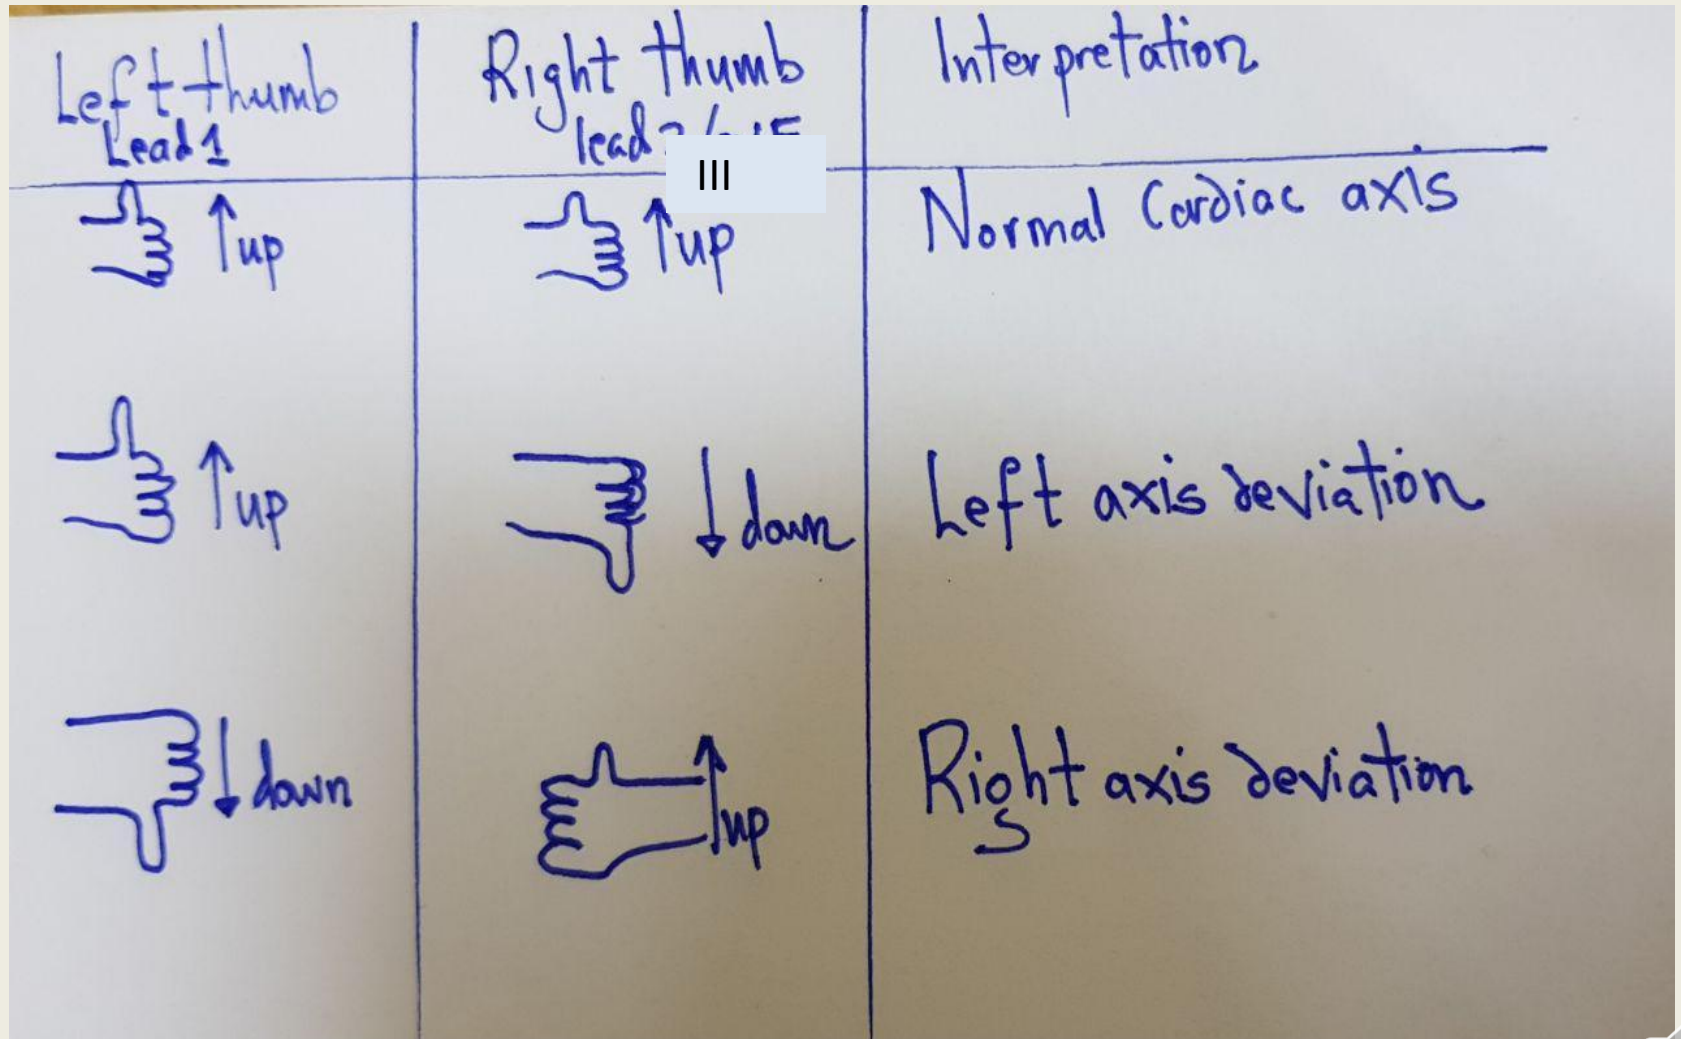 Left thumb
Lead 1
Right thumb
lead
III
Interpretation
↑ up
↑ up
Normal Cardiac axis
↑ up
↓ down
Left axis deviation
↓ down
↑ up
Right axis deviation